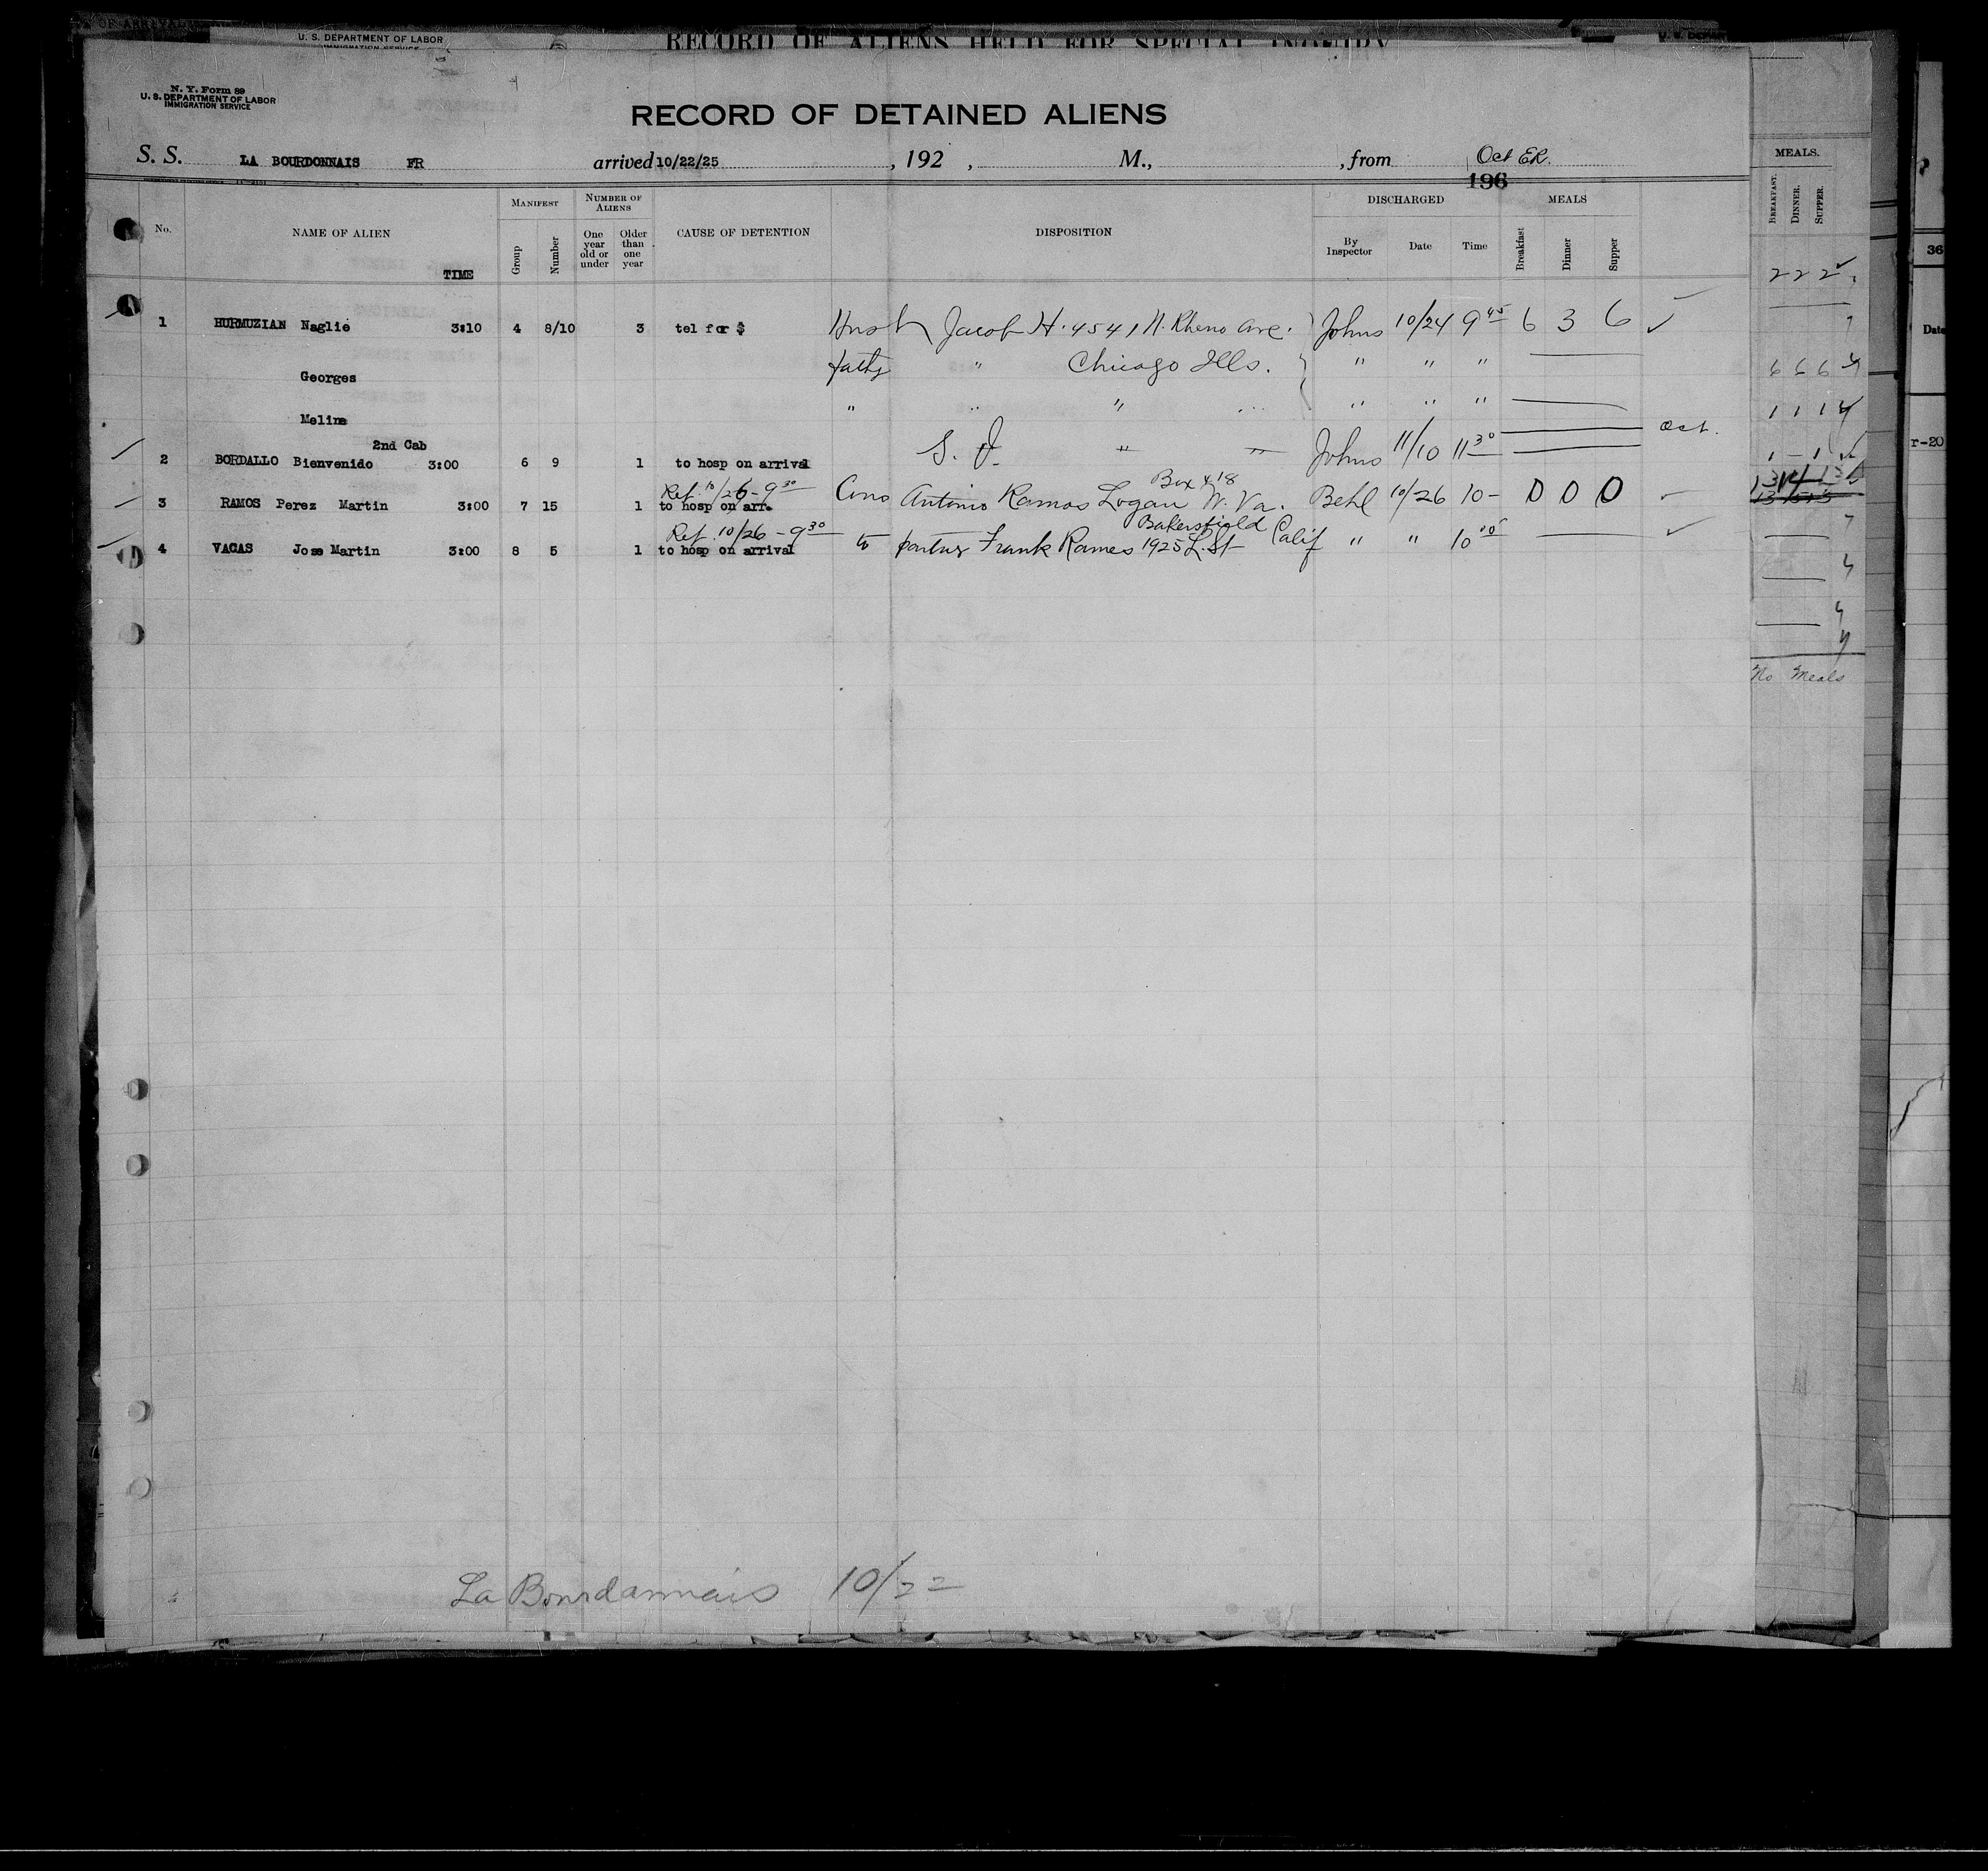 U. S. DEPARTMENT OF LABOR
IMMIGRATION SERVICE
RECORD OF ALIENS HELD FOR SPECIAL INQUIRY
N. Y. Form 89
U. S. DEPARTMENT OF LABOR
IMMIGRATION SERVICE
RECORD OF DETAINED ALIENS
S. S. LA BOURDONNAIS FR arrived 10/22/25 , 192 , M., , from Oct ER.
196
No. NAME OF ALIEN TIME MANIFEST Group Number NUMBER OF ALIENS One year old or under Older than one year CAUSE OF DETENTION DISPOSITION DISCHARGED By Inspector Date Time MEALS Breakfast Dinner Supper
1 HURMUZIAN Naglie 3:10 4 8/10 3 tel for $ Jacob H. 4541 N. Ave. Johns 10/24 9 45 6 3 6 ✓
Georges " Chicago Ills. " " "
Meline " " " " " "
2nd Cab
2 BORDALLO Bienvenido 3:00 6 9 1 to hosp on arrival Johns 11/10 11 30 Oct.
Ref. 10/26 - 9 30 Box 418
3 RAMOS Perez Martin 3:00 7 15 1 to hosp on arr. Antonio Ramos Logan W. Va. Behl 10/26 10 - 0 0 0
Ref. 10/26 - 9 30 Bakersfield Calif
4 VACAS Jose Martin 3:00 8 5 1 to hosp on arrival to Frank Rames 1925 L. St " " 10 05
La Bourdannais 10/22
MEALS.
BREAKFAST. DINNER. SUPPER.
2 2 2
6 6 6
1 1 1
1 - 1
No Meals
36
Date
r-20